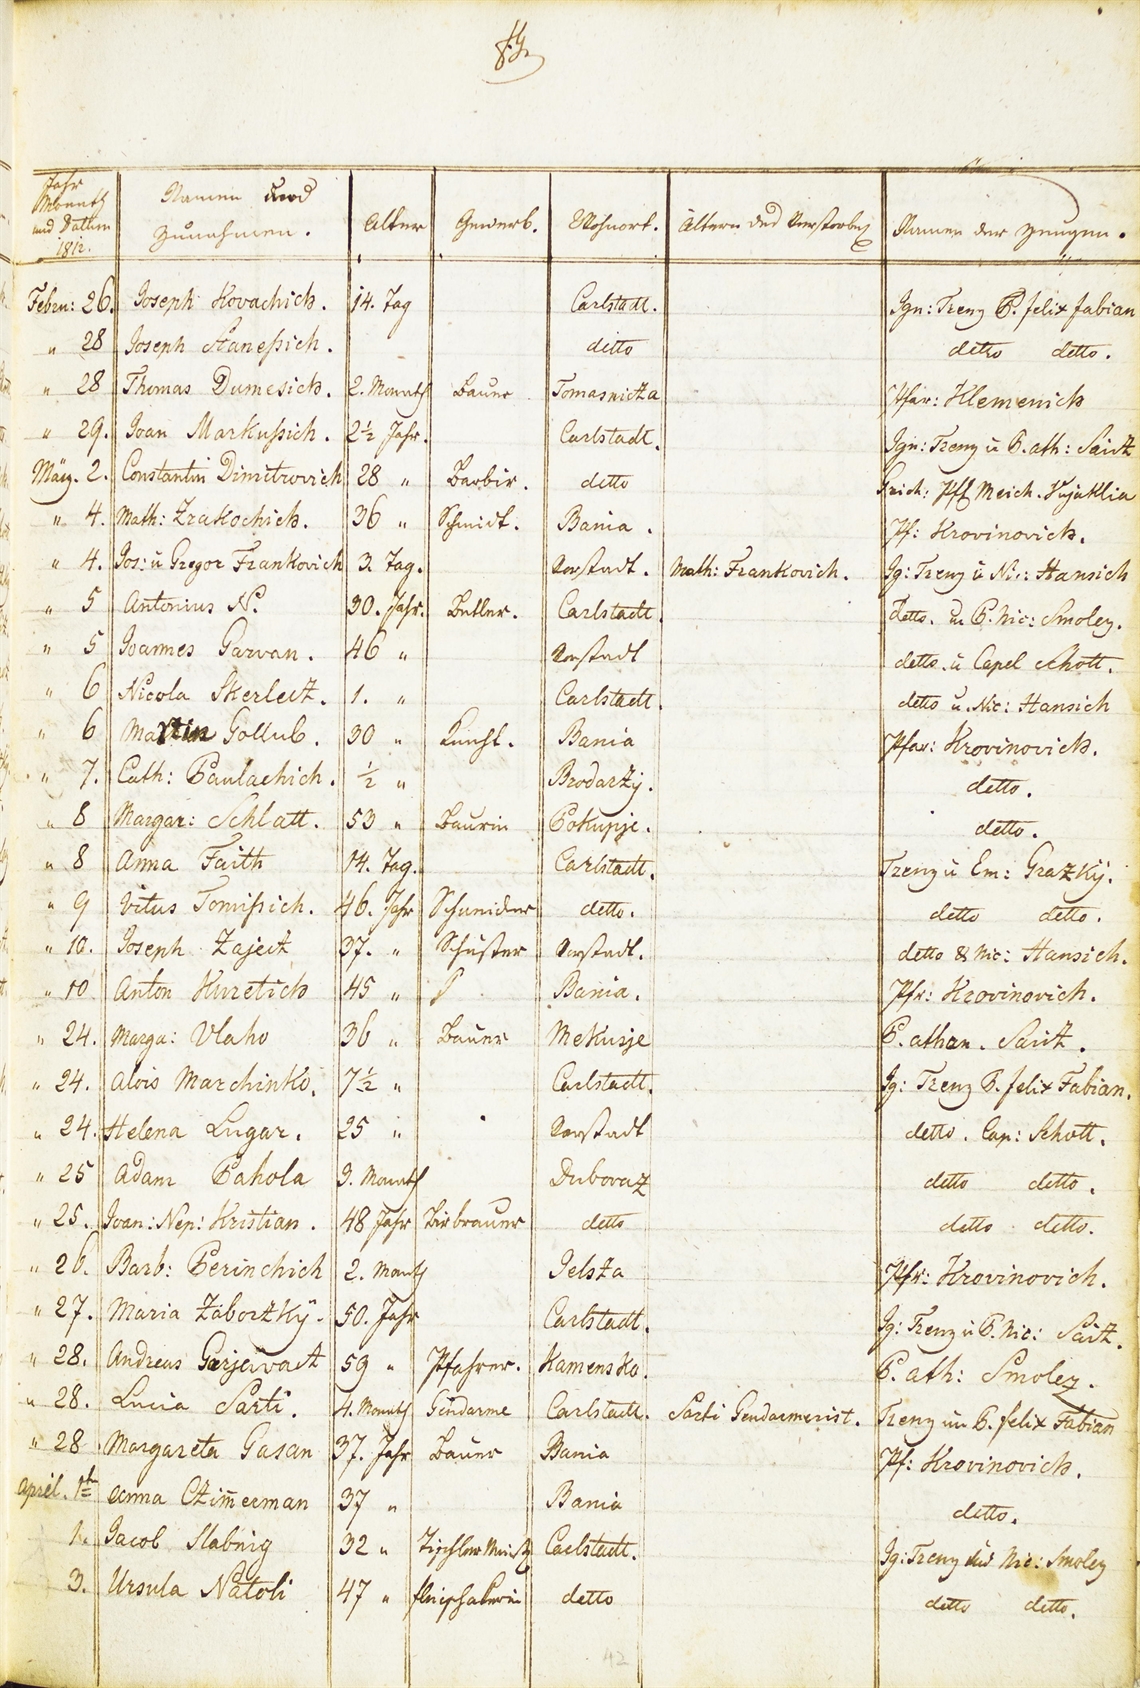 Jahr
Monath
und Datum
1812.
Namen und
Zunahmen.
Alter
Gewerb.
Wohnort.
Ältern des Verstorbe
Namen der Zeugen.
Febru: 26. Joseph Kovachich. 14. Tag Carlstadt. Ign: Trenz P. felix fabian
" 28 Joseph Stanessich. detto detto detto.
" 28 Thomas Dumesich. 2. Monath Bauer Tomasnicza Pfar: Klemenich
" 29. Joan Markussich. 2½ Jahr. Carlstadt. Ign: Trenz ü P. ath: Saicz
März. 2. Constantin Dimitrovich 28 " Barbir. detto Grich: Pff Meich. Vujaklia
" 4. Math: Zrakochich. 36 " Schmidt. Bania. Pf: Krovinovich.
" 4. Jos: ü Gregor Frankovich 3. Tag. Vorstadt. Math: Frankovich. Ig: Trenz ü Nic: Hansich
" 5 Antonius N. 30. Jahr. Betler. Carlstadt. detto. P. Nic: Smolez.
" 5 Joannes Garvan. 46 " Vorstadt detto. ü Capel Schott.
" 6 Nicola Skerlecz. 1. " Carlstadt. detto ü. Nic: Hansich
" 6 Martin Gollub. 30 " Knecht. Bania Pfar: Krovinovich.
" 7. Cath: Paulachich. ½ " Brodarzy. detto.
" 8 Margar: Schlatt. 53 " Baurin Pokupje. detto.
" 8 Anna Faith 14. Tag. Carlstadt. Trenz ü Em: Grazky.
" 9 Vitus Tomissich. 46. Jahr Schneider detto. detto detto.
" 10. Joseph Zajecz 37. " Schuster Vorstadt. detto & Nic: Hansich.
" 10 Anton Kuretich 45 " Bania. Pfr: Krovinovich.
" 24. Marga: Vlaho 36 " Bauer Mekusje P. athan. Saicz.
" 24. Alois Marchinko. 7½ " Carlstadt. Ig: Trenz P. felix Fabian.
" 24. Helena Lugar. 25 " Vorstadt detto. Cap: Schott.
" 25 Adam Pahola 9. Monath Dubovaz detto detto.
" 25. Joan: Nep: Kristian. 48 Jahr Birbrauer detto detto detto.
" 26. Barb: Perinchich 2. Monath Jelsza Pfr: Krovinovich.
" 27. Maria Zaborzky. 50. Jahr Carlstadt. Ig: Trenz ü P. Nic: Saicz.
" 28. Andreas 59 " Pfahrer. Kamensko. P. ath: Smolez.
" 28. Lucia Sarti. 4. Monath Gendarme Carlstadt. Sarti Gendarmerist. Trenz P. felix Fabian
" 28 Margareta Gasan 37. Jahr Bauer Bania Pf: Krovinovich.
April. 1t Anna Czimerman 37 " Bania detto.
1. Jacob Slabnig 32 " Tischler Carlstadt. Ig: Trenz und Nic: Smolez
3. Ursula Natoli 47 " detto detto detto.
42